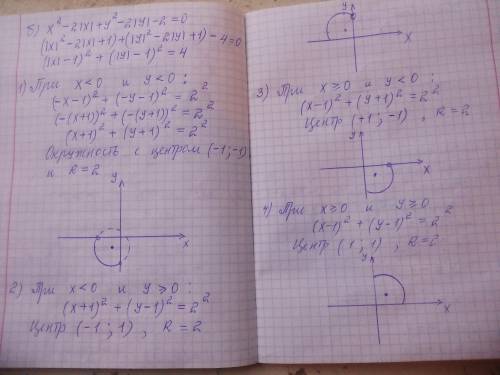 б) x² - 2|x| + y² - 2|y| - 2 = 0
(|x|² - 2|x| + 1) + (|y|² - 2|y| + 1) - 4 = 0
(|x| - 1)² + (|y| - 1)² = 4
1) При x < 0 и y < 0 :
(-x-1)² + (-y-1)² = 2²
(-(x+1))² + (-(y+1))² = 2²
(x+1)² + (y+1)² = 2²
Окружность с центром (-1; -1)
и R = 2
y
x
2) При x < 0 и y ≥ 0 :
(x+1)² + (y-1)² = 2²
Центр (-1; 1) , R = 2
y
x
3) При x ≥ 0 и y < 0 :
(x-1)² + (y+1)² = 2²
Центр (+1; -1) , R = 2
y
x
4) При x ≥ 0 и y ≥ 0
(x-1)² + (y-1)² = 2²
Центр (1; 1) , R = 2
y
x